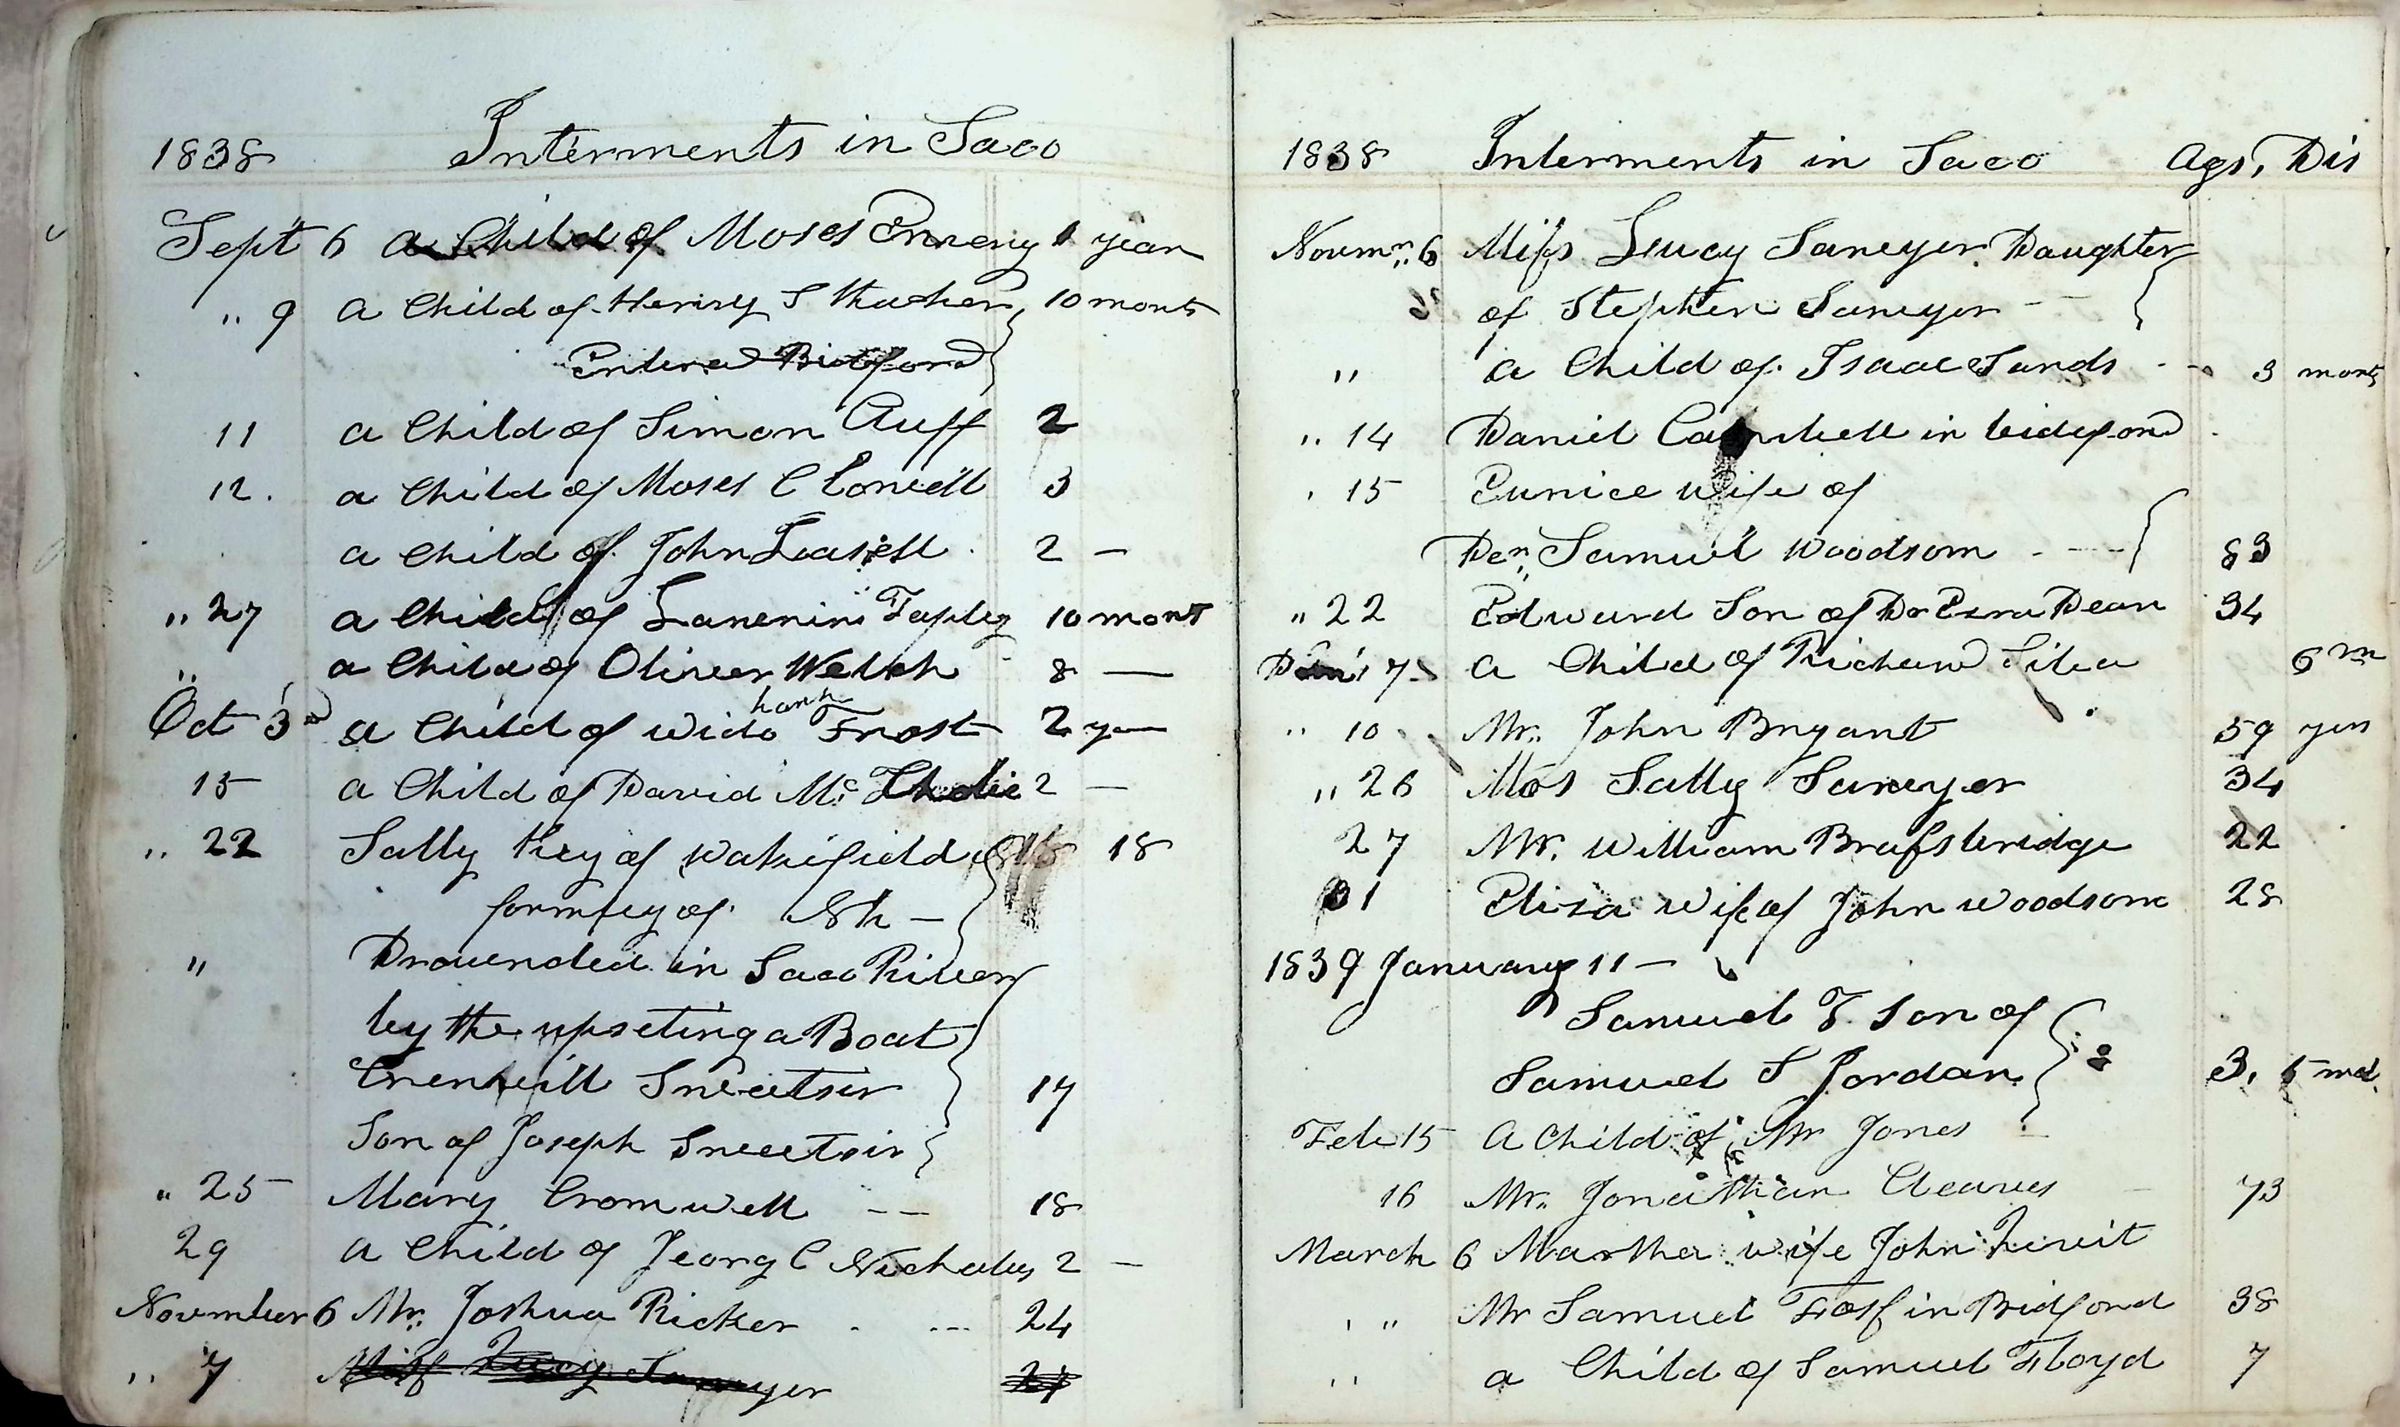 1838 Interments in Saco
Sept 6 a Child of Moses Emeny 1 year
" 9 a Child of Henry S Thacher 10 monts
Entered Bidford
11 a Child of Simon Auff 2
12. a Child of Moses C Lowell 3
a Child of John Leavett 2 —
" 27 a Child of Tapley 10 mont
" a Child of Oliver Welch 8 —
hanh
Oct 3d a Child of Wido Frost 2 y—
15 a Child of David Mc 2 —
" 22 Sally Key of Wakifield 18
formley of
" Drownded in Saco River
by the upseting a Boat
Crenvill Sweetsir 17
Son of Joseph Sweetsir
" 25 Mary Cromwell -- 18
29 a Child of Georg C Nicholus 2 —
November 6 Mr. Joshua Ricker 24
" 7 Miss Lucy Sawyer 24
1838 Interments in Saco Ags, Dis
Novemr. 6 Miss Lucy Sawyer Daughter
of Stephen Sawyer --
" a Child of Isaac Sands 3 monts
" 14 Daniel Campbell in bideford
15 Eunice wife of
Den. Samuel Woodsom 83
" 22 Edward Son of Dr Ezra Dean 34
7 a Child of Richard 6 m
" 10 Mr. John Bryant 59 yers
" 26 Mos Sally Sawyer 34
27 Mr. William Brassbridge 22
31 Eliza wife of John Woodsom 28
1839 January 11 —
Samuel T. Son of
Samuel S Jordan 3, 5 md.
Feb 15 A Child of Mr Jones
16 Mr. Jonathan Cleaves 73
March 6 Marther wife John
" Mr Samuel Foss in Bidford 38
" a Child of Samuel Floyd 7